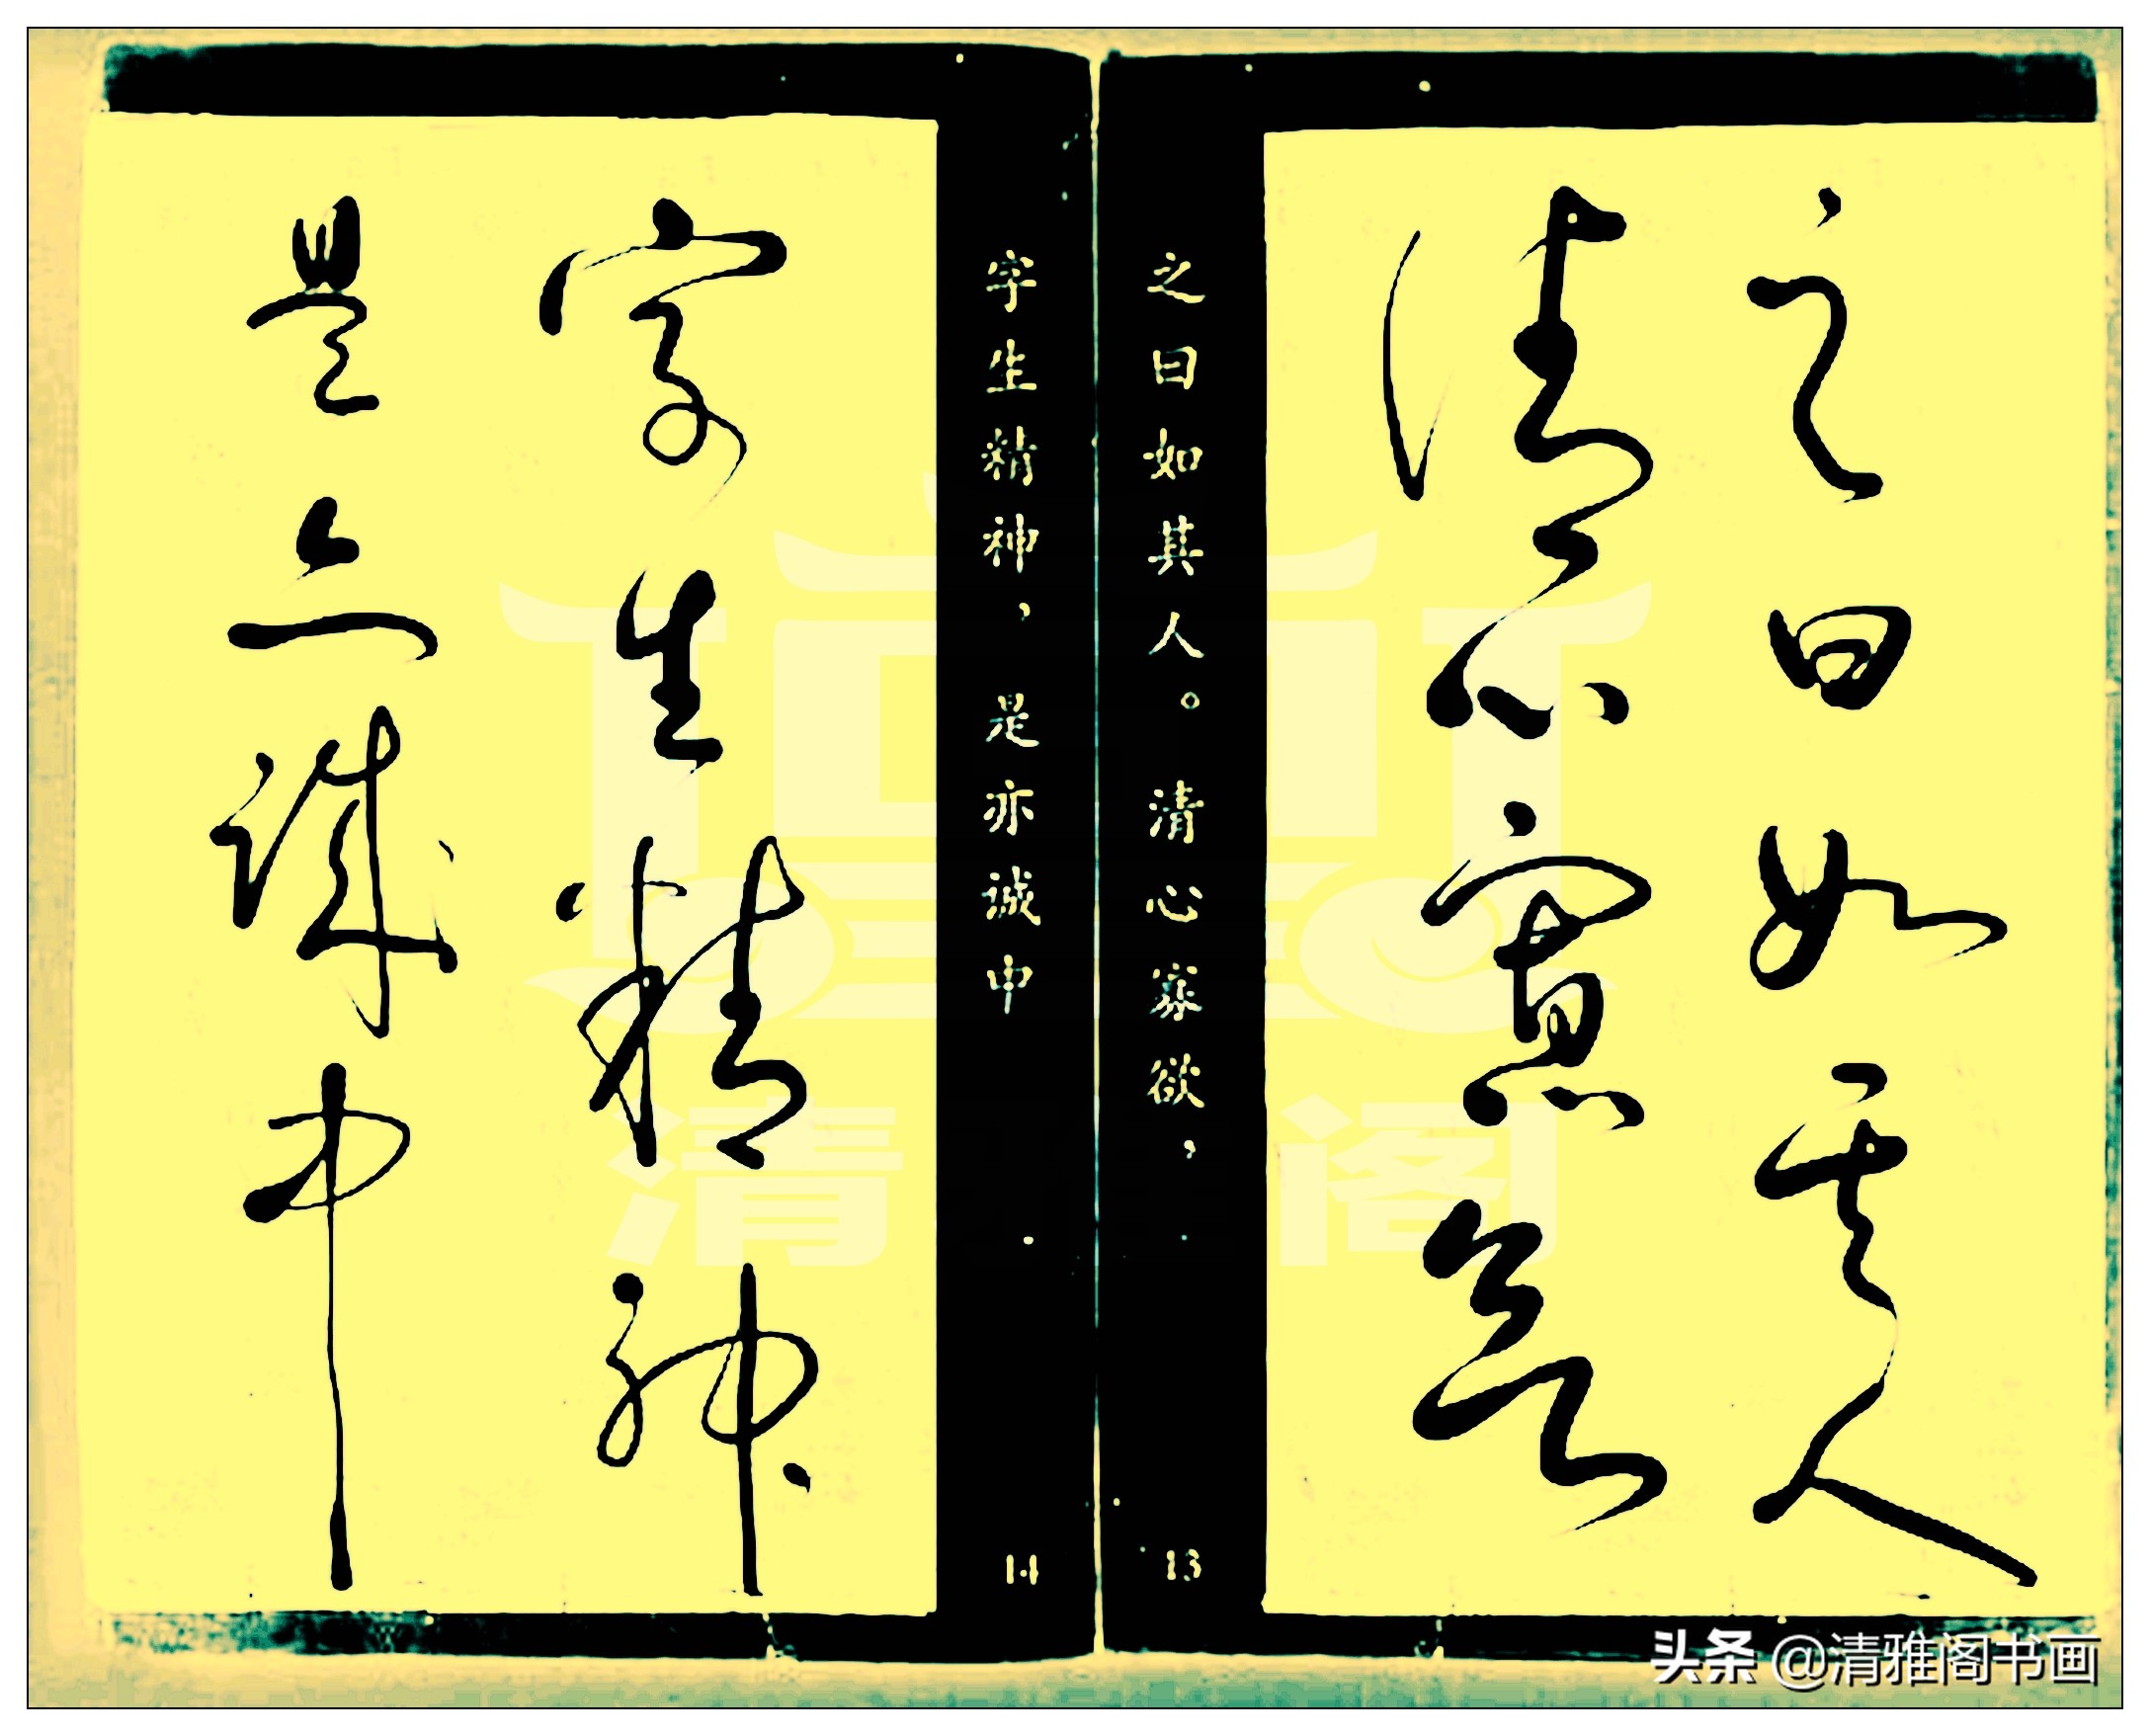 之曰如其人
清心寡欲
之曰如其人。清心寡欲，
13
字生精神，是亦诚中
14
字生精神
是亦诚中
清 阁
头条 @清雅阁书画